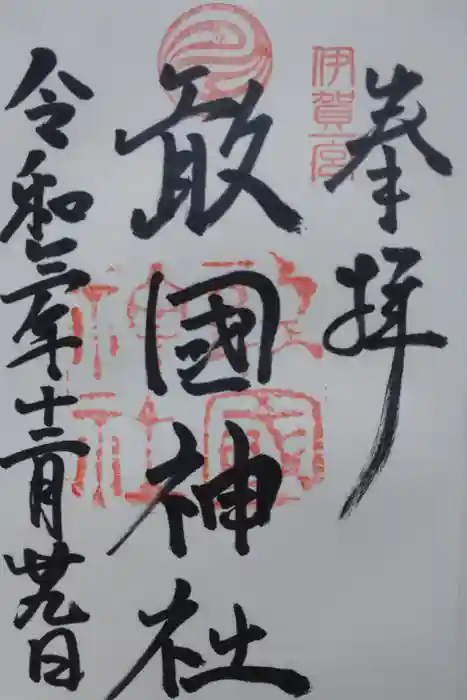 奉拝
伊賀一宮
敢國神社
敢國神社
令和三年十二月廿九日